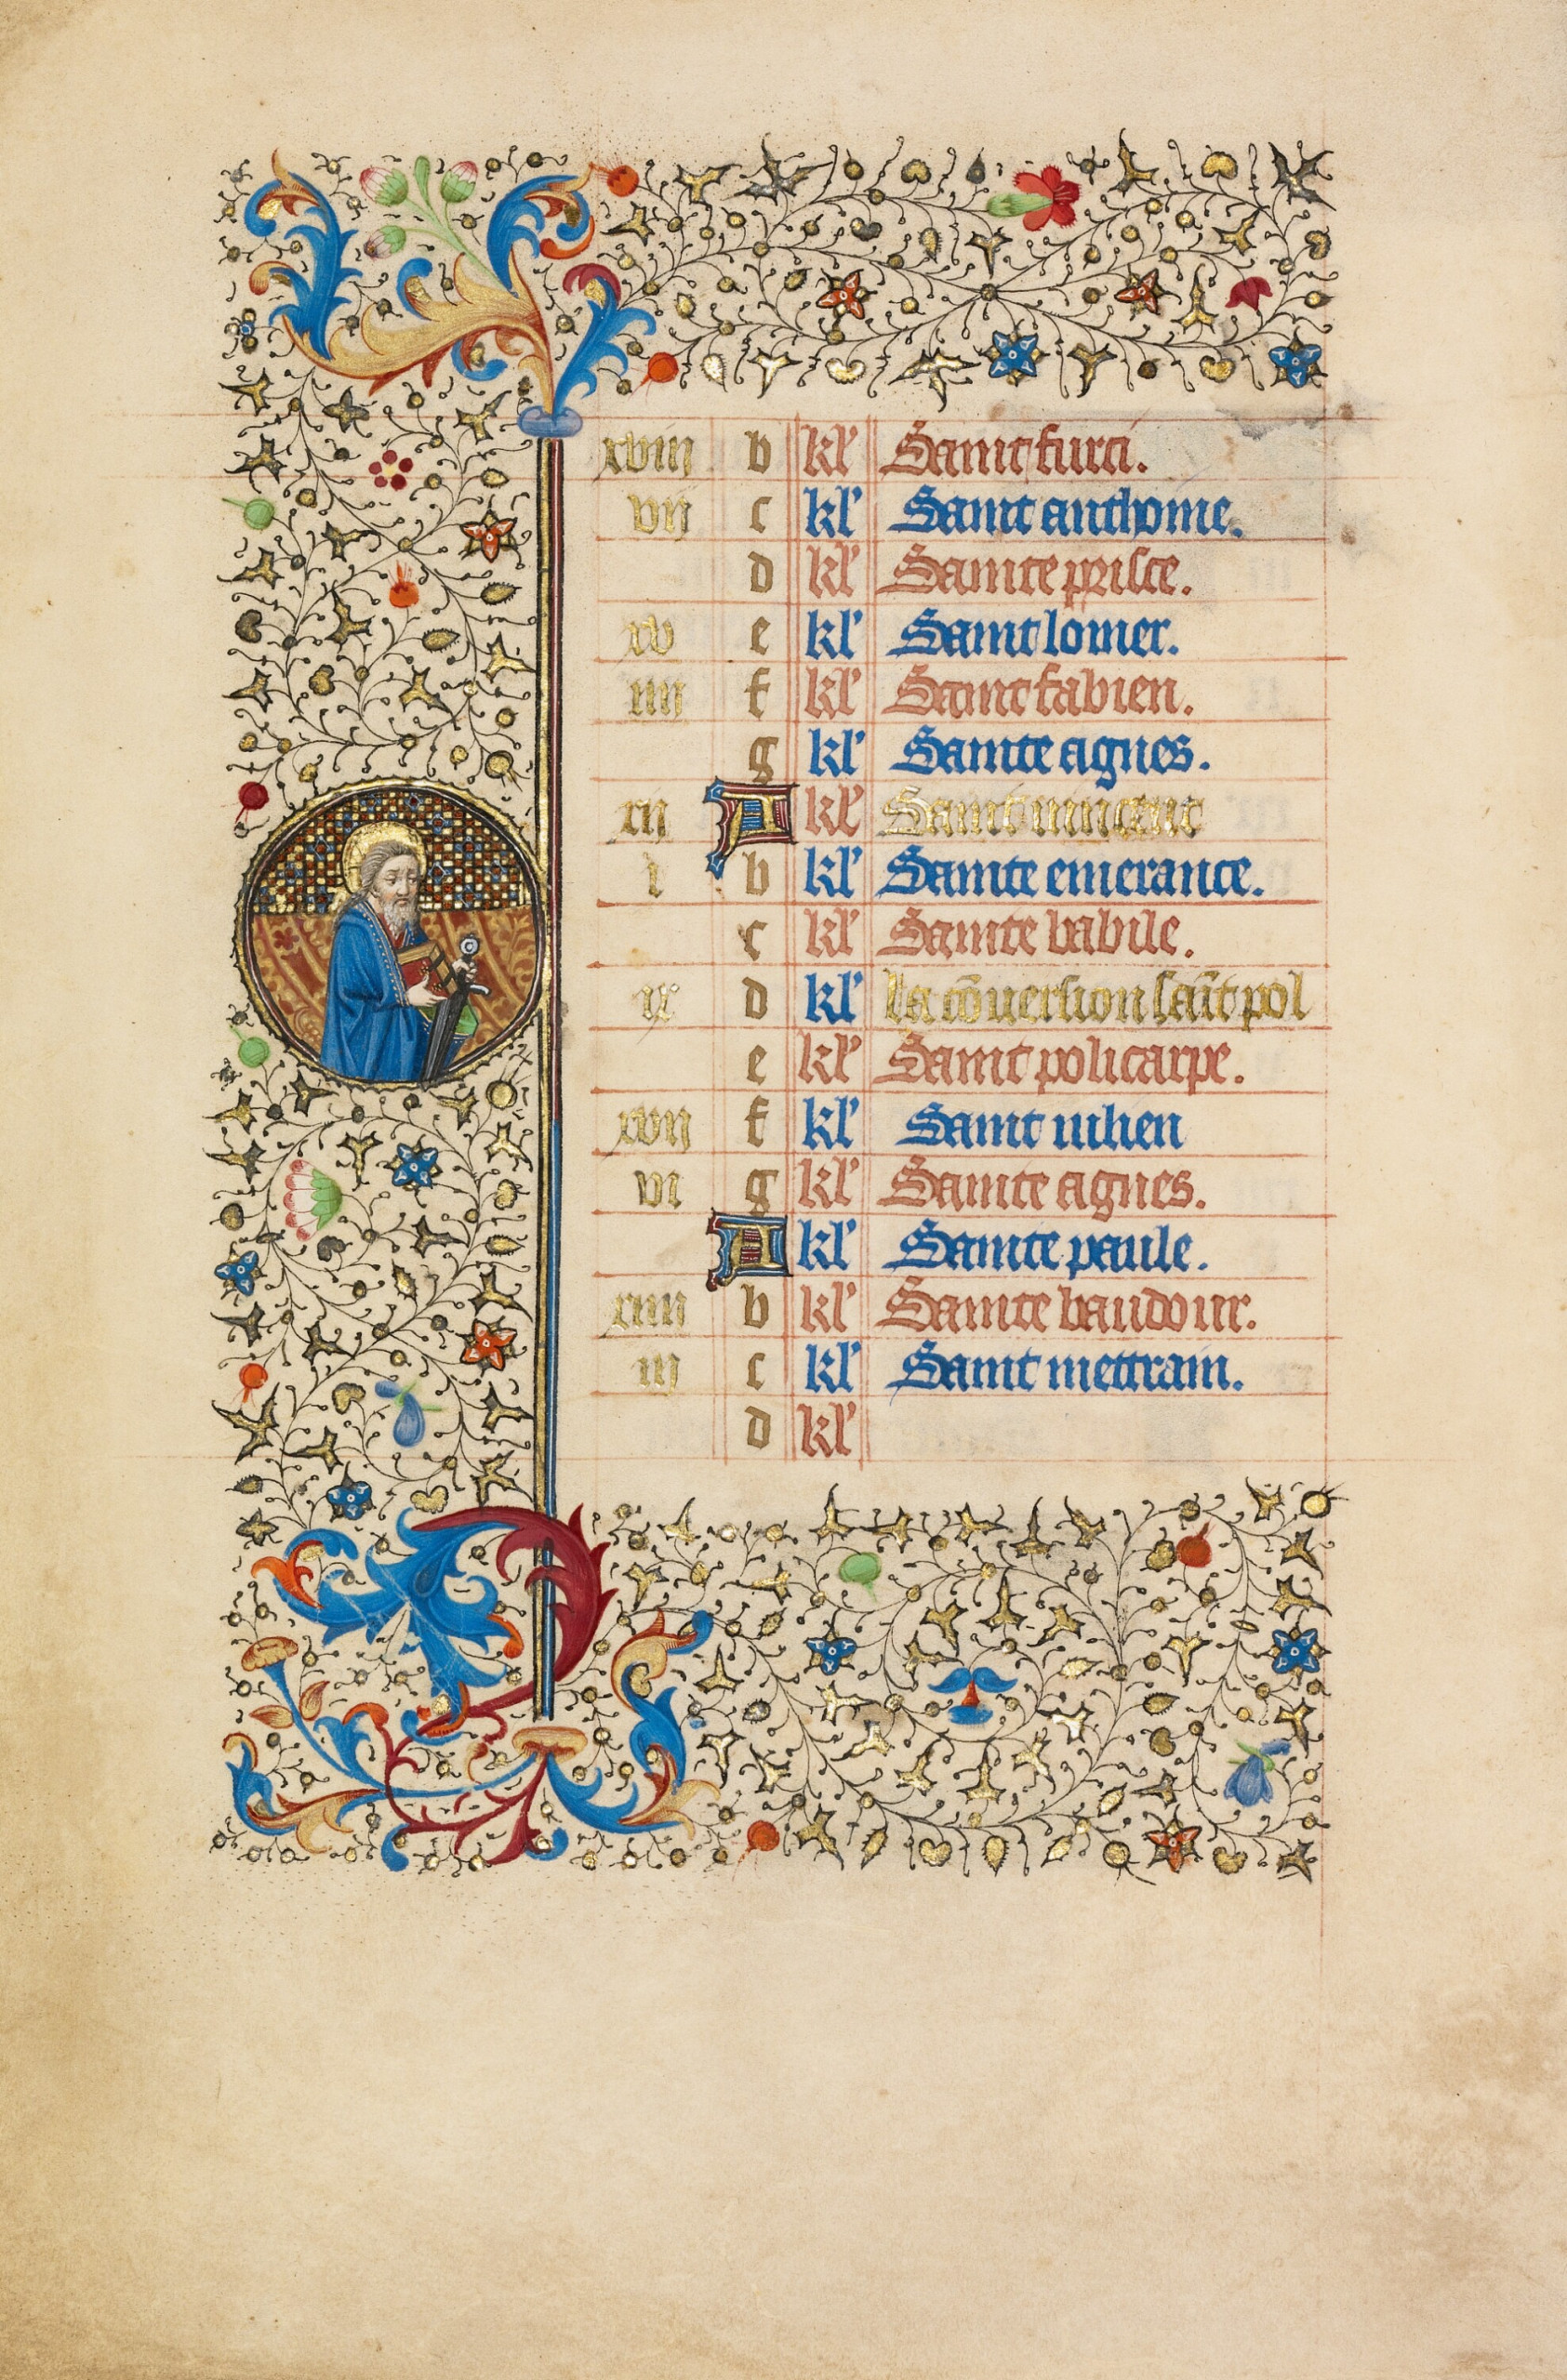 xviii b kl' Saint furci.
vii c kl' Saint anthoine.
d kl' Sainte prisce.
xv e kl' Saint lomer.
iiii f kl' Saint fabien.
g kl' Sainte agnes.
xii A kl' Saint vincent
i b kl' Sainte emerance.
c kl' Sainte babile.
ix d kl' la cōuersion saīt pol
e kl' Saint policarpe.
xvii f kl' Saint iulien
vi g kl' Sainte agnes.
A kl' Sainte paule.
xiiii b kl' Sainte baudour.
iii c kl' Saint mettrain.
d kl'